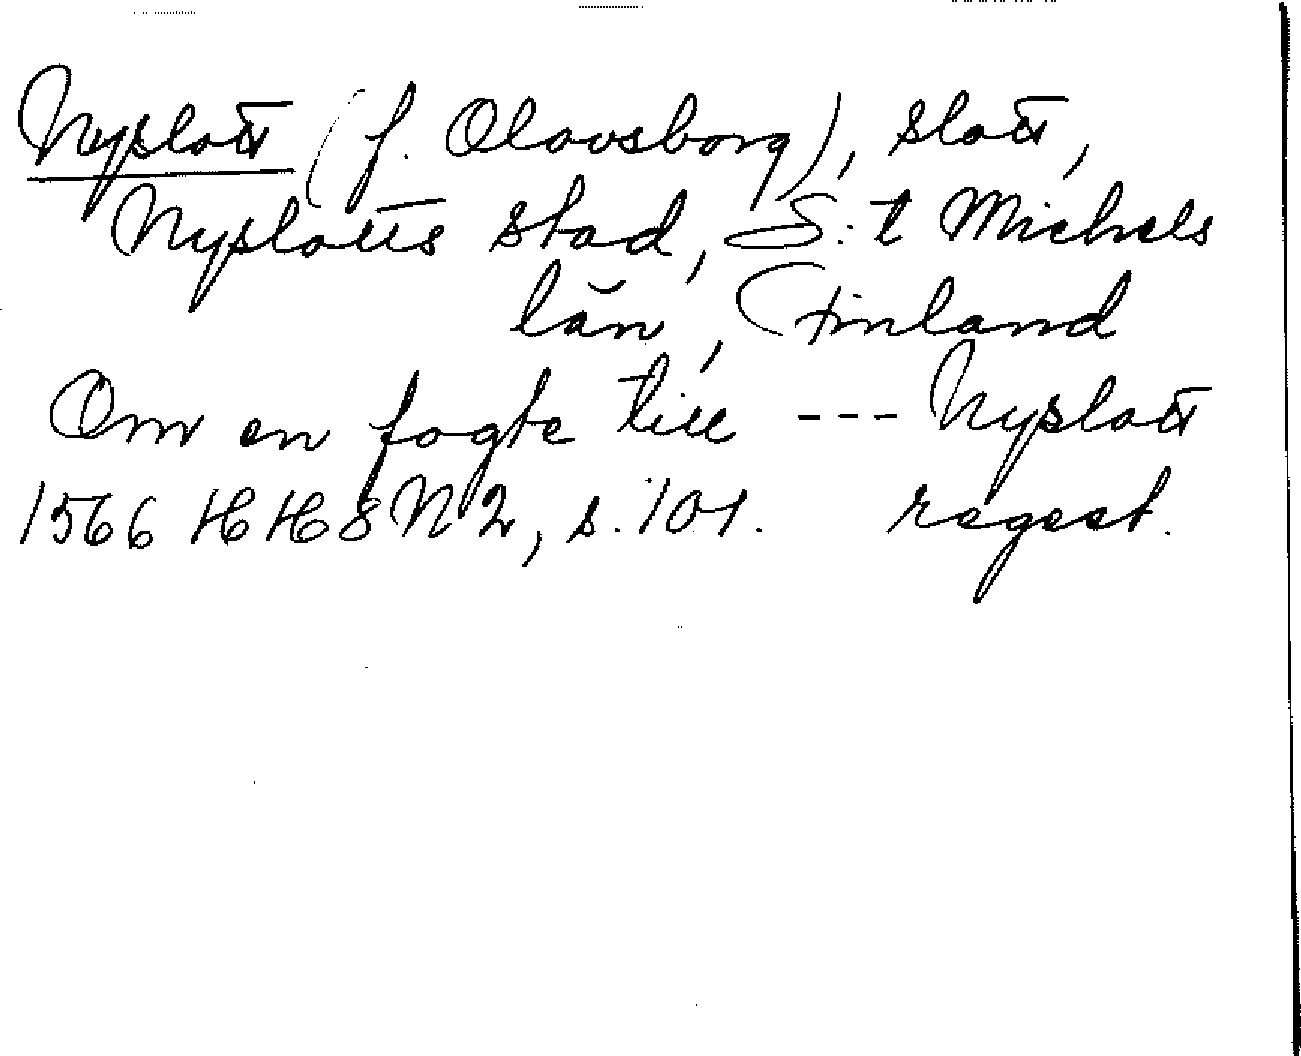 Nyslott (f. Olovsborg), slott,
Nyslotts stad, S:t Michels
län, Finland
Om en fogte till --- Nyslott
1566 HH8N2, s. 101. regest.